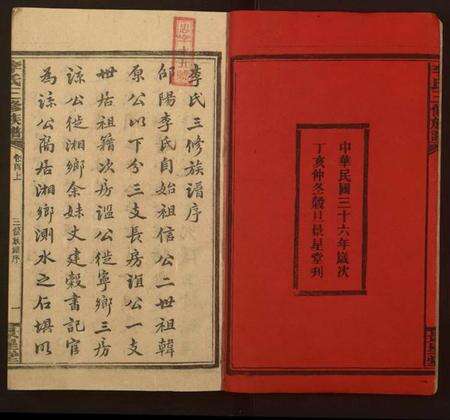 中華民國三十六年歲次
丁亥仲冬穀旦景星堂刊
李氏三修族譜序
邵陽李氏自始祖信公二世祖韓
原公以下分三支長房誼公一支
世居祖籍次房諡公徙寧鄉三房
諒公徙湘鄉余妹丈建穀書記官
為諒公裔居湘鄉測水之石堪以
李氏三修族譜
卷四上
三修族譜序
一